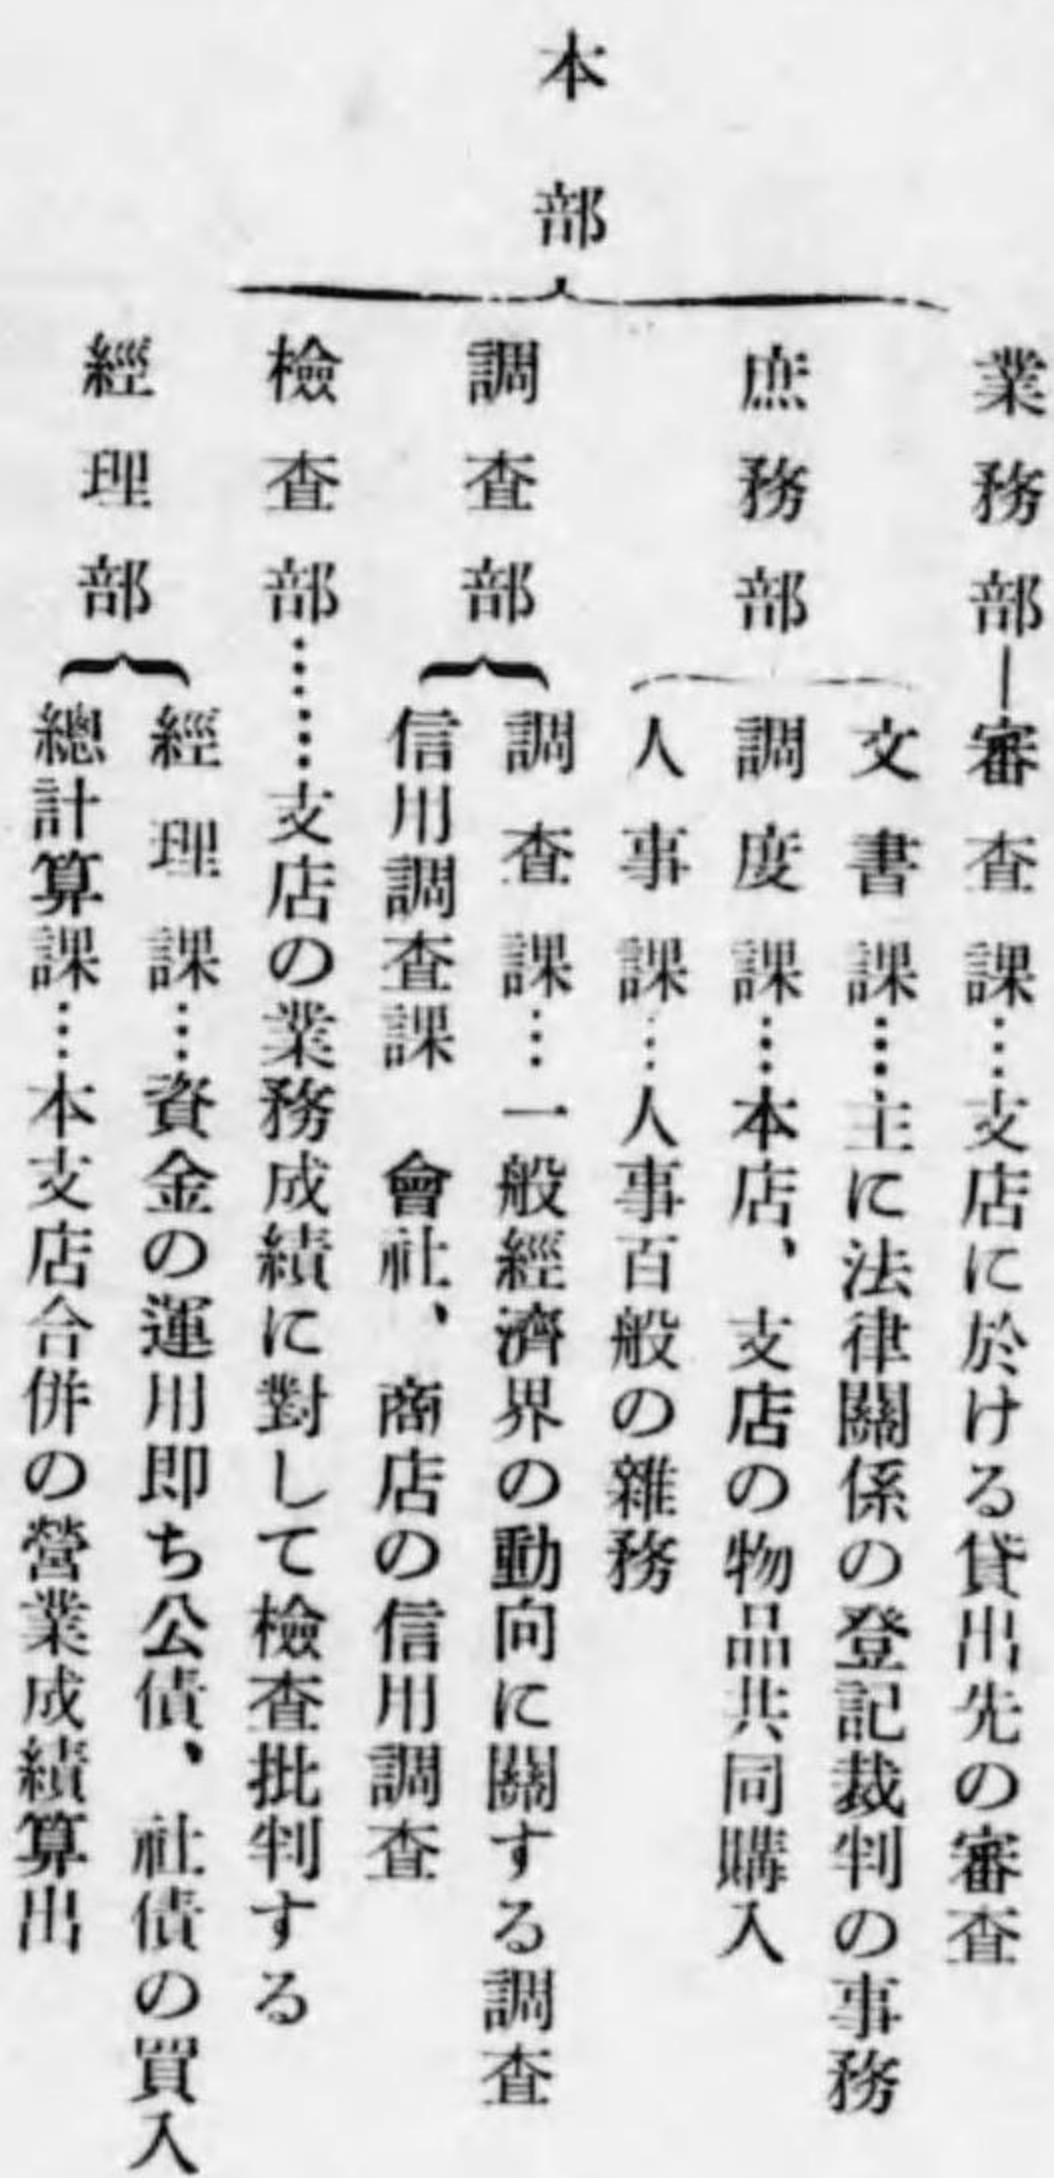 本部
業務部―審査課…支店に於ける貸出先の審査
庶務部
文書課…主に法律關係の登記裁判の事務
調度課…本店、支店の物品共同購入
人事課…人事百般の雜務
調査部
調査課…一般經濟界の動向に關する調査
信用調査課 會社、商店の信用調査
檢査部……支店の業務成績に對して檢査批判する
經理部
經理課…資金の運用即ち公債、社債の買入
總計算課…本支店合併の營業成績算出